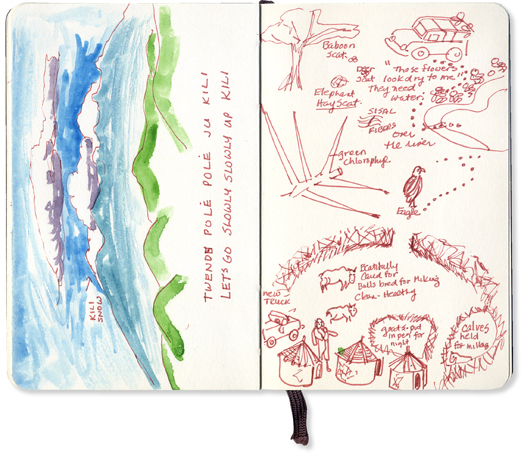 TWENDE POLÉ POLÉ JU KILI
LETS GO SLOWLY SLOWLY UP KILI
KILI
SNOW
Baboon
Scat.
Deer
Scat
Elephant
Hay Scat.
"These flowers
look dry to me."
They need
water.
SISAL
FIBERS
over
the river
green
chlorophyl
Eagle
Beautifully
Cared for
Bulls bred for Milking
Clean - Healthy
new
TRUCK
goats put
in pen for
night
calves
held
for milking